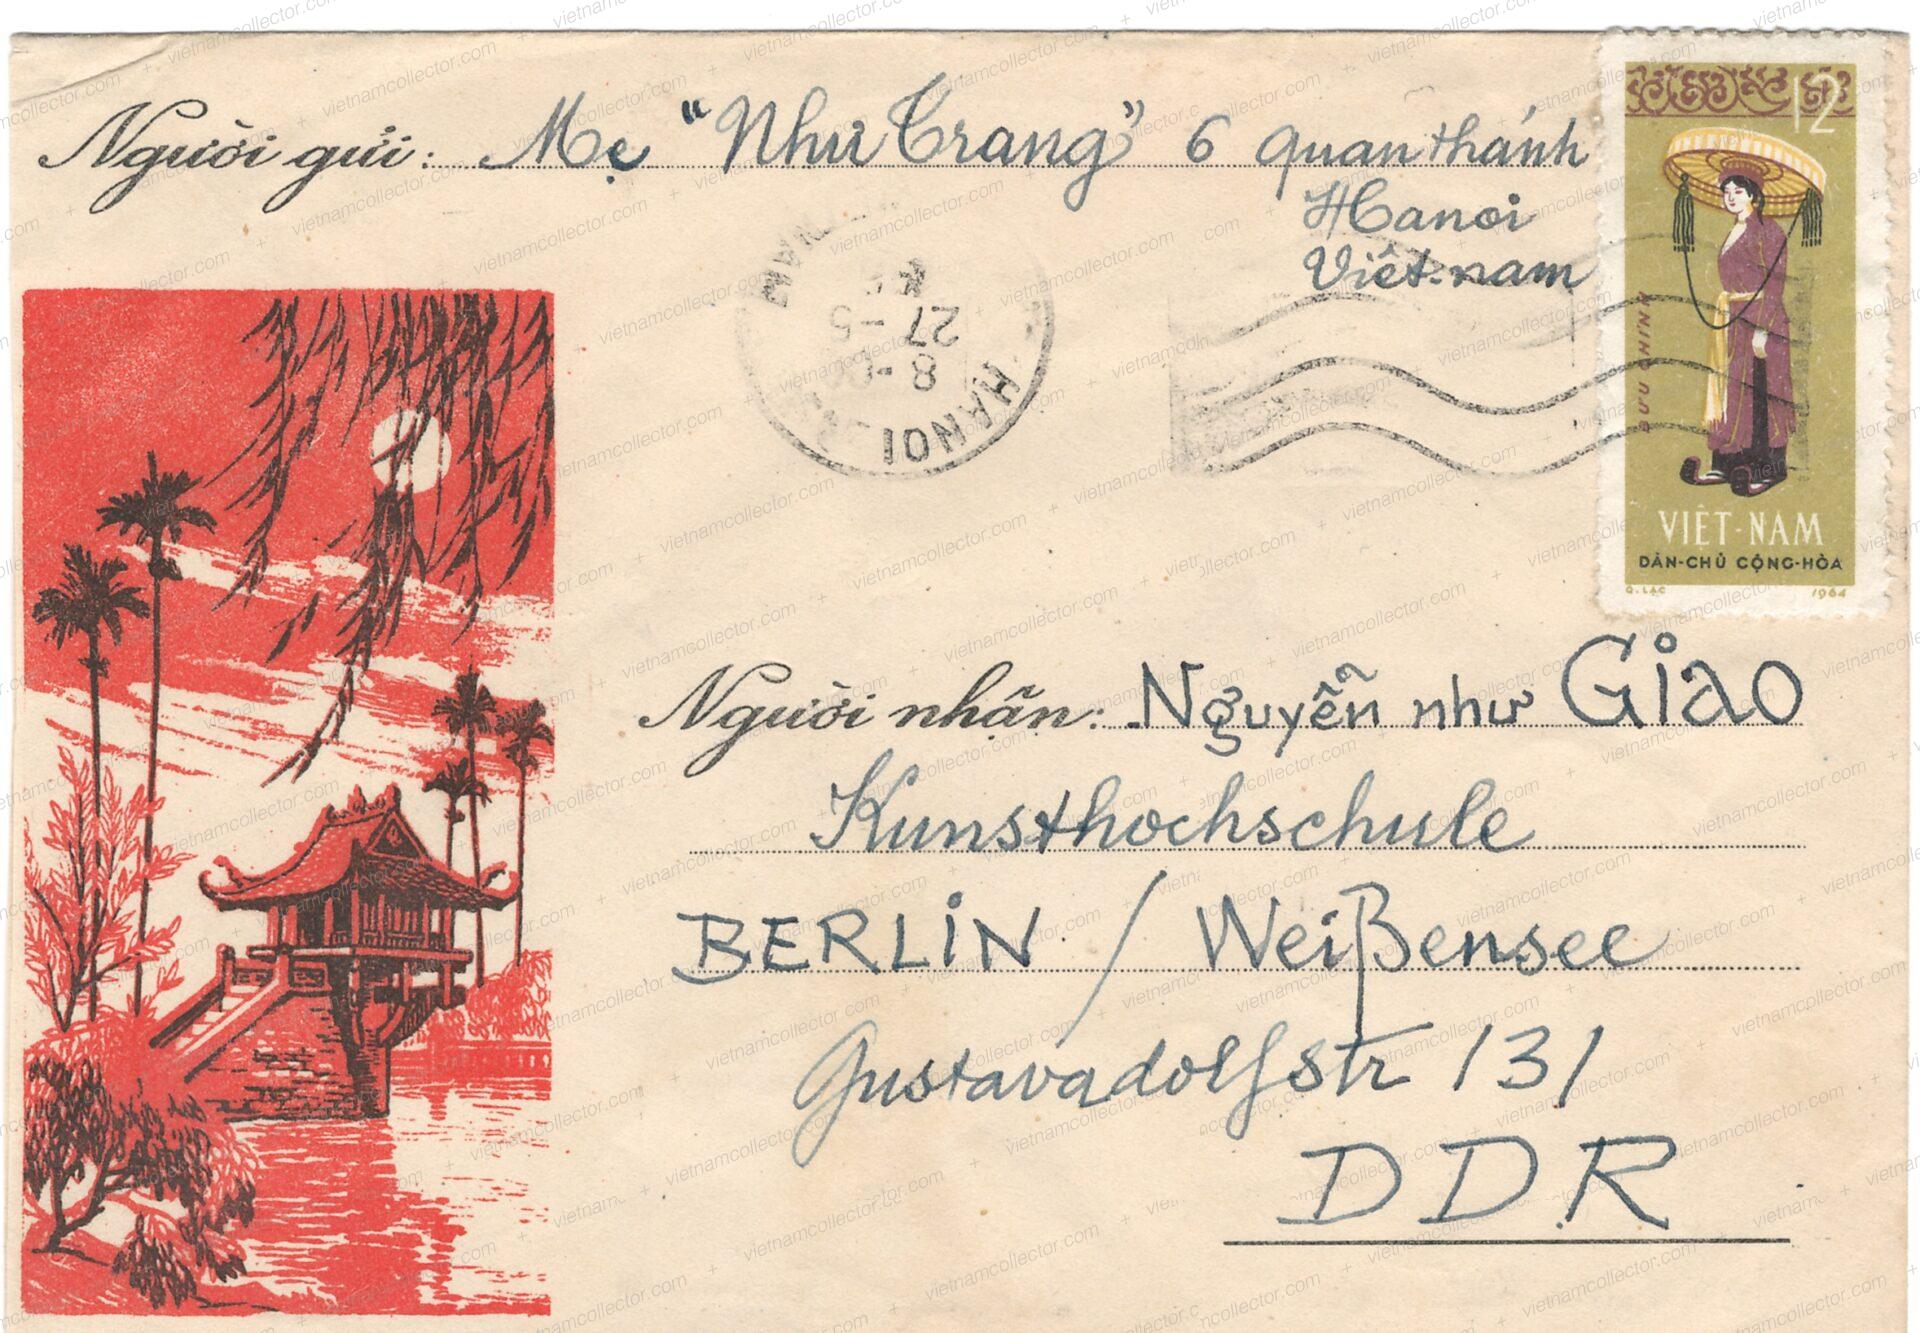 Người gửi: Mẹ "Như Trang" 6 Quan thánh
Hanoi
Việt-nam
12
BƯU CHÍNH
VIỆT-NAM
DÂN-CHỦ CỘNG-HÒA
Q. LẠC 1964
HANOI
27-5
8
Người nhận: Nguyễn như Giao
Kunsthochschule
BERLiN / Weißensee
Gustavadolfstr 131
DDR
vietnamcollector.com